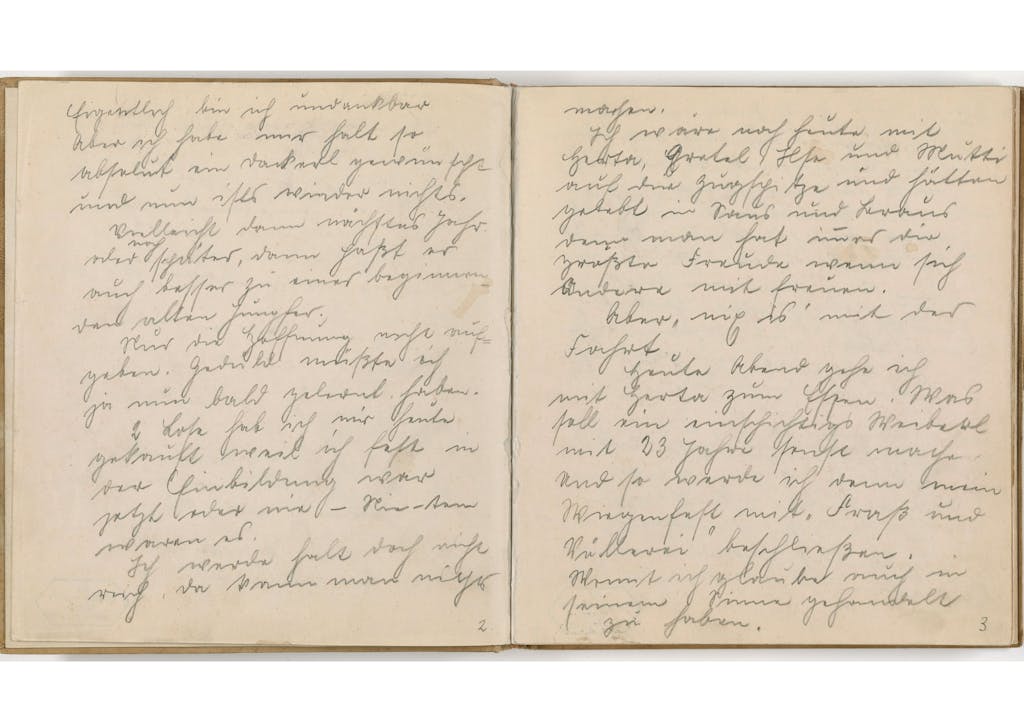 Eigentlich bin ich undankbar
Aber ich habe mir halt so
absolut ein Dackerl gewünscht
und nun ists wieder nichts.
Vielleicht dann nächstes Jahr
oder noch später, dann paßt es
auch besser zu einer beginnen-
den alten Jungfer.
Nur die Hoffnung nicht auf=
geben. Geduld müßte ich
ja nun bald gelernt haben.
2 Lose hab ich mir heute
gekauft weil ich fest in
der Einbildung war
jetzt oder nie – Nie-ten
waren es.
Ich werde halt doch nicht
reich, da kann man nichts
2
machen.
Ich wäre noch heute mit
Herta, Gretel, Ilse und Mutti
auf die Zugspitze und hätten
gelebt in Saus und Braus
denn man hat immer die
größte Freude wenn sich
Andere mit freuen.
Aber „nix is" mit der
Fahrt.
Heute Abend gehe ich
mit Herta zum Essen. Was
soll ein einschichtigs Weiberl
mit 23 Jahre sonst mache
und so werde ich denn mein
Wiegenfest mit „Fraß und
Völlerei" beschließen.
Womit ich glaube auch in
seinem Sinne gehandelt
zu haben.
3